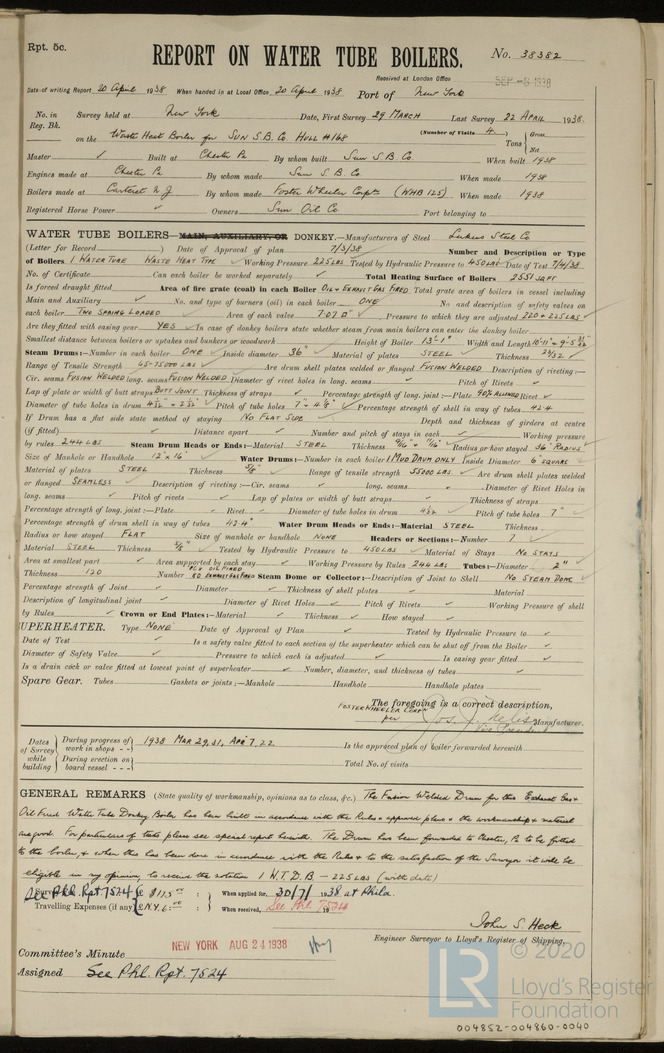 Rpt. 5c.
REPORT ON WATER TUBE BOILERS.
No. 38382
Received at London Office SEP -6 1938
Date of writing Report 20 April 1938 When handed in at Local Office 20 April 1938 Port of New York
No. in Reg. Bk. Survey held at New York Date, First Survey 29 MARCH Last Survey 22 APRIL 1938
(Number of Visits 4)
on the Waste Heat Boiler for SUN S.B. Co. HULL #168 Tons { Gross Net
Master ✓ Built at Chester Pa By whom built Sun S.B. Co. When built 1938
Engines made at Chester Pa By whom made Sun S.B. Co. When made 1938
Boilers made at Carteret N.J By whom made Foster Wheeler Corptn (WHB 125) When made 1938
Registered Horse Power ✓ Owners Sun Oil Co Port belonging to
WATER TUBE BOILERS MAIN, AUXILIARY, OR DONKEY.—Manufacturers of Steel Lukens Steel Co
(Letter for Record ) Date of Approval of plan 7/3/38 Number and Description or Type
of Boilers 1 WATER TUBE WASTE HEAT TYPE Working Pressure 225 LBS Tested by Hydraulic Pressure to 450 LBS Date of Test 7/4/38
No. of Certificate Can each boiler be worked separately ✓ Total Heating Surface of Boilers 2551 SQ FT
Is forced draught fitted Area of fire grate (coal) in each Boiler OIL + EXHAUST GAS FIRED Total grate area of boilers in vessel including
Main and Auxiliary ✓ No. and type of burners (oil) in each boiler ONE No. and description of safety valves on
each boiler TWO SPRING LOADED Area of each valve 7.07 □" Pressure to which they are adjusted 220 + 225 LBS
Are they fitted with easing gear YES In case of donkey boilers state whether steam from main boilers can enter the donkey boiler
Smallest distance between boilers or uptakes and bunkers or woodwork Height of Boiler 13'-1" Width and Length
Steam Drums:—Number in each boiler ONE Inside diameter 36" Material of plates STEEL Thickness 29/32
Range of Tensile Strength 65-75000 LBS Are drum shell plates welded or flanged FUSION WELDED Description of riveting:—
Cir. seams FUSION WELDED long. seams FUSION WELDED Diameter of rivet holes in long. seams ✓ Pitch of Rivets ✓
Lap of plate or width of butt straps BUTT JOINT Thickness of straps ✓ Percentage strength of long. joint:—Plate 90% ALLOWED Rivet ✓
Diameter of tube holes in drum Pitch of tube holes Percentage strength of shell in way of tubes 42.4
If Drum has a flat side state method of staying NO FLAT SIDE Depth and thickness of girders at centre
(if fitted) ✓ Distance apart Number and pitch of stays in each ✓ Working pressure
by rules 244 LBS Steam Drum Heads or Ends:—Material STEEL Thickness Radius or how stayed 36" RADIUS
Size of Manhole or Handhole 12" x 16" Water Drums:—Number in each boiler 1 MUD DRUM ONLY Inside Diameter 6" SQUARE
Material of plates STEEL Thickness 5/8" Range of tensile strength 55000 LBS Are drum shell plates welded
or flanged SEAMLESS Description of riveting:—Cir. seams ✓ long. seams ✓ Diameter of Rivet Holes in
long. seams ✓ Pitch of rivets ✓ Lap of plates or width of butt straps ✓ Thickness of straps
Percentage strength of long. joint:—Plate ✓ Rivet ✓ Diameter of tube holes in drum Pitch of tube holes 7"
Percentage strength of drum shell in way of tubes 42.4" Water Drum Heads or Ends:—Material STEEL Thickness
Radius or how stayed FLAT Size of manhole or handhole NONE Headers or Sections:—Number 7
Material STEEL Thickness 5/8" Tested by Hydraulic Pressure to 450 LBS Material of Stays NO STAYS
Area at smallest part ✓ Area supported by each stay ✓ Working Pressure by Rules 244 LBS Tubes:—Diameter 2"
Thickness .120 Number OIL FIRED 80 EXHAUST GAS FIRED Steam Dome or Collector:—Description of Joint to Shell NO STEAM DOME
Percentage strength of Joint ✓ Diameter ✓ Thickness of shell plates ✓ Material
Description of longitudinal joint ✓ Diameter of Rivet Holes ✓ Pitch of Rivets ✓ Working Pressure of shell
by Rules ✓ Crown or End Plates:—Material ✓ Thickness ✓ How stayed ✓
SUPERHEATER. Type NONE Date of Approval of Plan ✓ Tested by Hydraulic Pressure to ✓
Date of Test ✓ Is a safety valve fitted to each section of the superheater which can be shut off from the Boiler ✓
Diameter of Safety Valve ✓ Pressure to which each is adjusted ✓ Is easing gear fitted ✓
Is a drain cock or valve fitted at lowest point of superheater ✓ Number, diameter, and thickness of tubes ✓
Spare Gear. Tubes Gaskets or joints:—Manhole Handhole Handhole plates
The foregoing is a correct description,
FOSTER WHEELER CORPN per Manufacturer.
Vice President
Dates of Survey while building { During progress of work in shops - - } 1938 MAR 29, 31, APR 7, 22. Is the approved plan of boiler forwarded herewith
{ During erection on board vessel - - - } Total No. of visits
GENERAL REMARKS (State quality of workmanship, opinions as to class, &c.) The Fusion Welded Drum for this Exhaust Gas &
Oil Fired Water Tube Donkey Boiler has been built in accordance with the Rules & approved plans & the workmanship & material
are good. For particulars of tests please see special report herewith. The Drum has been forwarded to Chester, Pa to be fitted
to the boiler, & when this has been done in accordance with the Rules & to the satisfaction of the Surveyor it will be
eligible in my opinion, to receive the notation 1 W.T.D.B - 225 LBS (with date)
See Phl. Rpt. 7524 $175.00 : When applied for, 30/7/1938 at Phila.
Travelling Expenses (if any) £ N.Y. 6:00 : When received, See Phl. 7524 19
John S. Heck
Engineer Surveyor to Lloyd's Register of Shipping.
NEW YORK AUG 24 1938
Committee's Minute
Assigned See Phl. Rpt. 7524
© 2020
LR Lloyd's Register
Foundation
004852-004860-0040